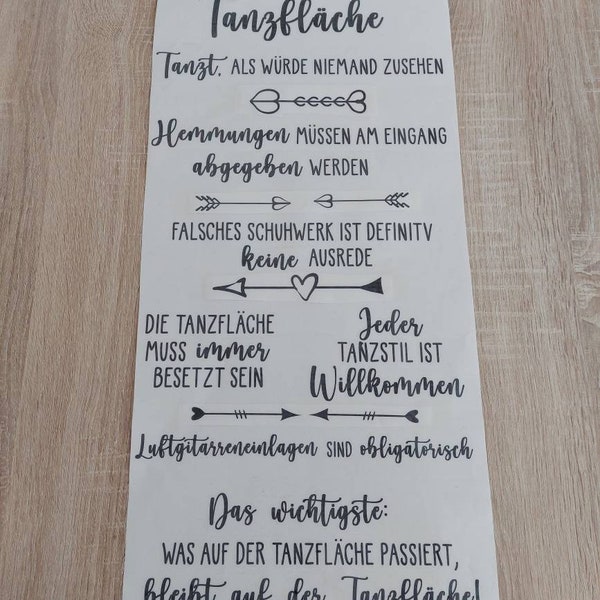 Tanzfläche
Tanzt, ALS WÜRDE NIEMAND ZUSEHEN
Hemmungen MÜSSEN AM EINGANG
abgegeben WERDEN
FALSCHES SCHUHWERK IST DEFINITV
keine AUSREDE
DIE TANZFLÄCHE
MUSS immer
BESETZT SEIN
Jeder
TANZSTIL IST
Willkommen
Luftgitarreneinlagen SIND obligatorisch
Das wichtigste:
WAS AUF DER TANZFLÄCHE PASSIERT,
bleibt auf der Tanzfläche!